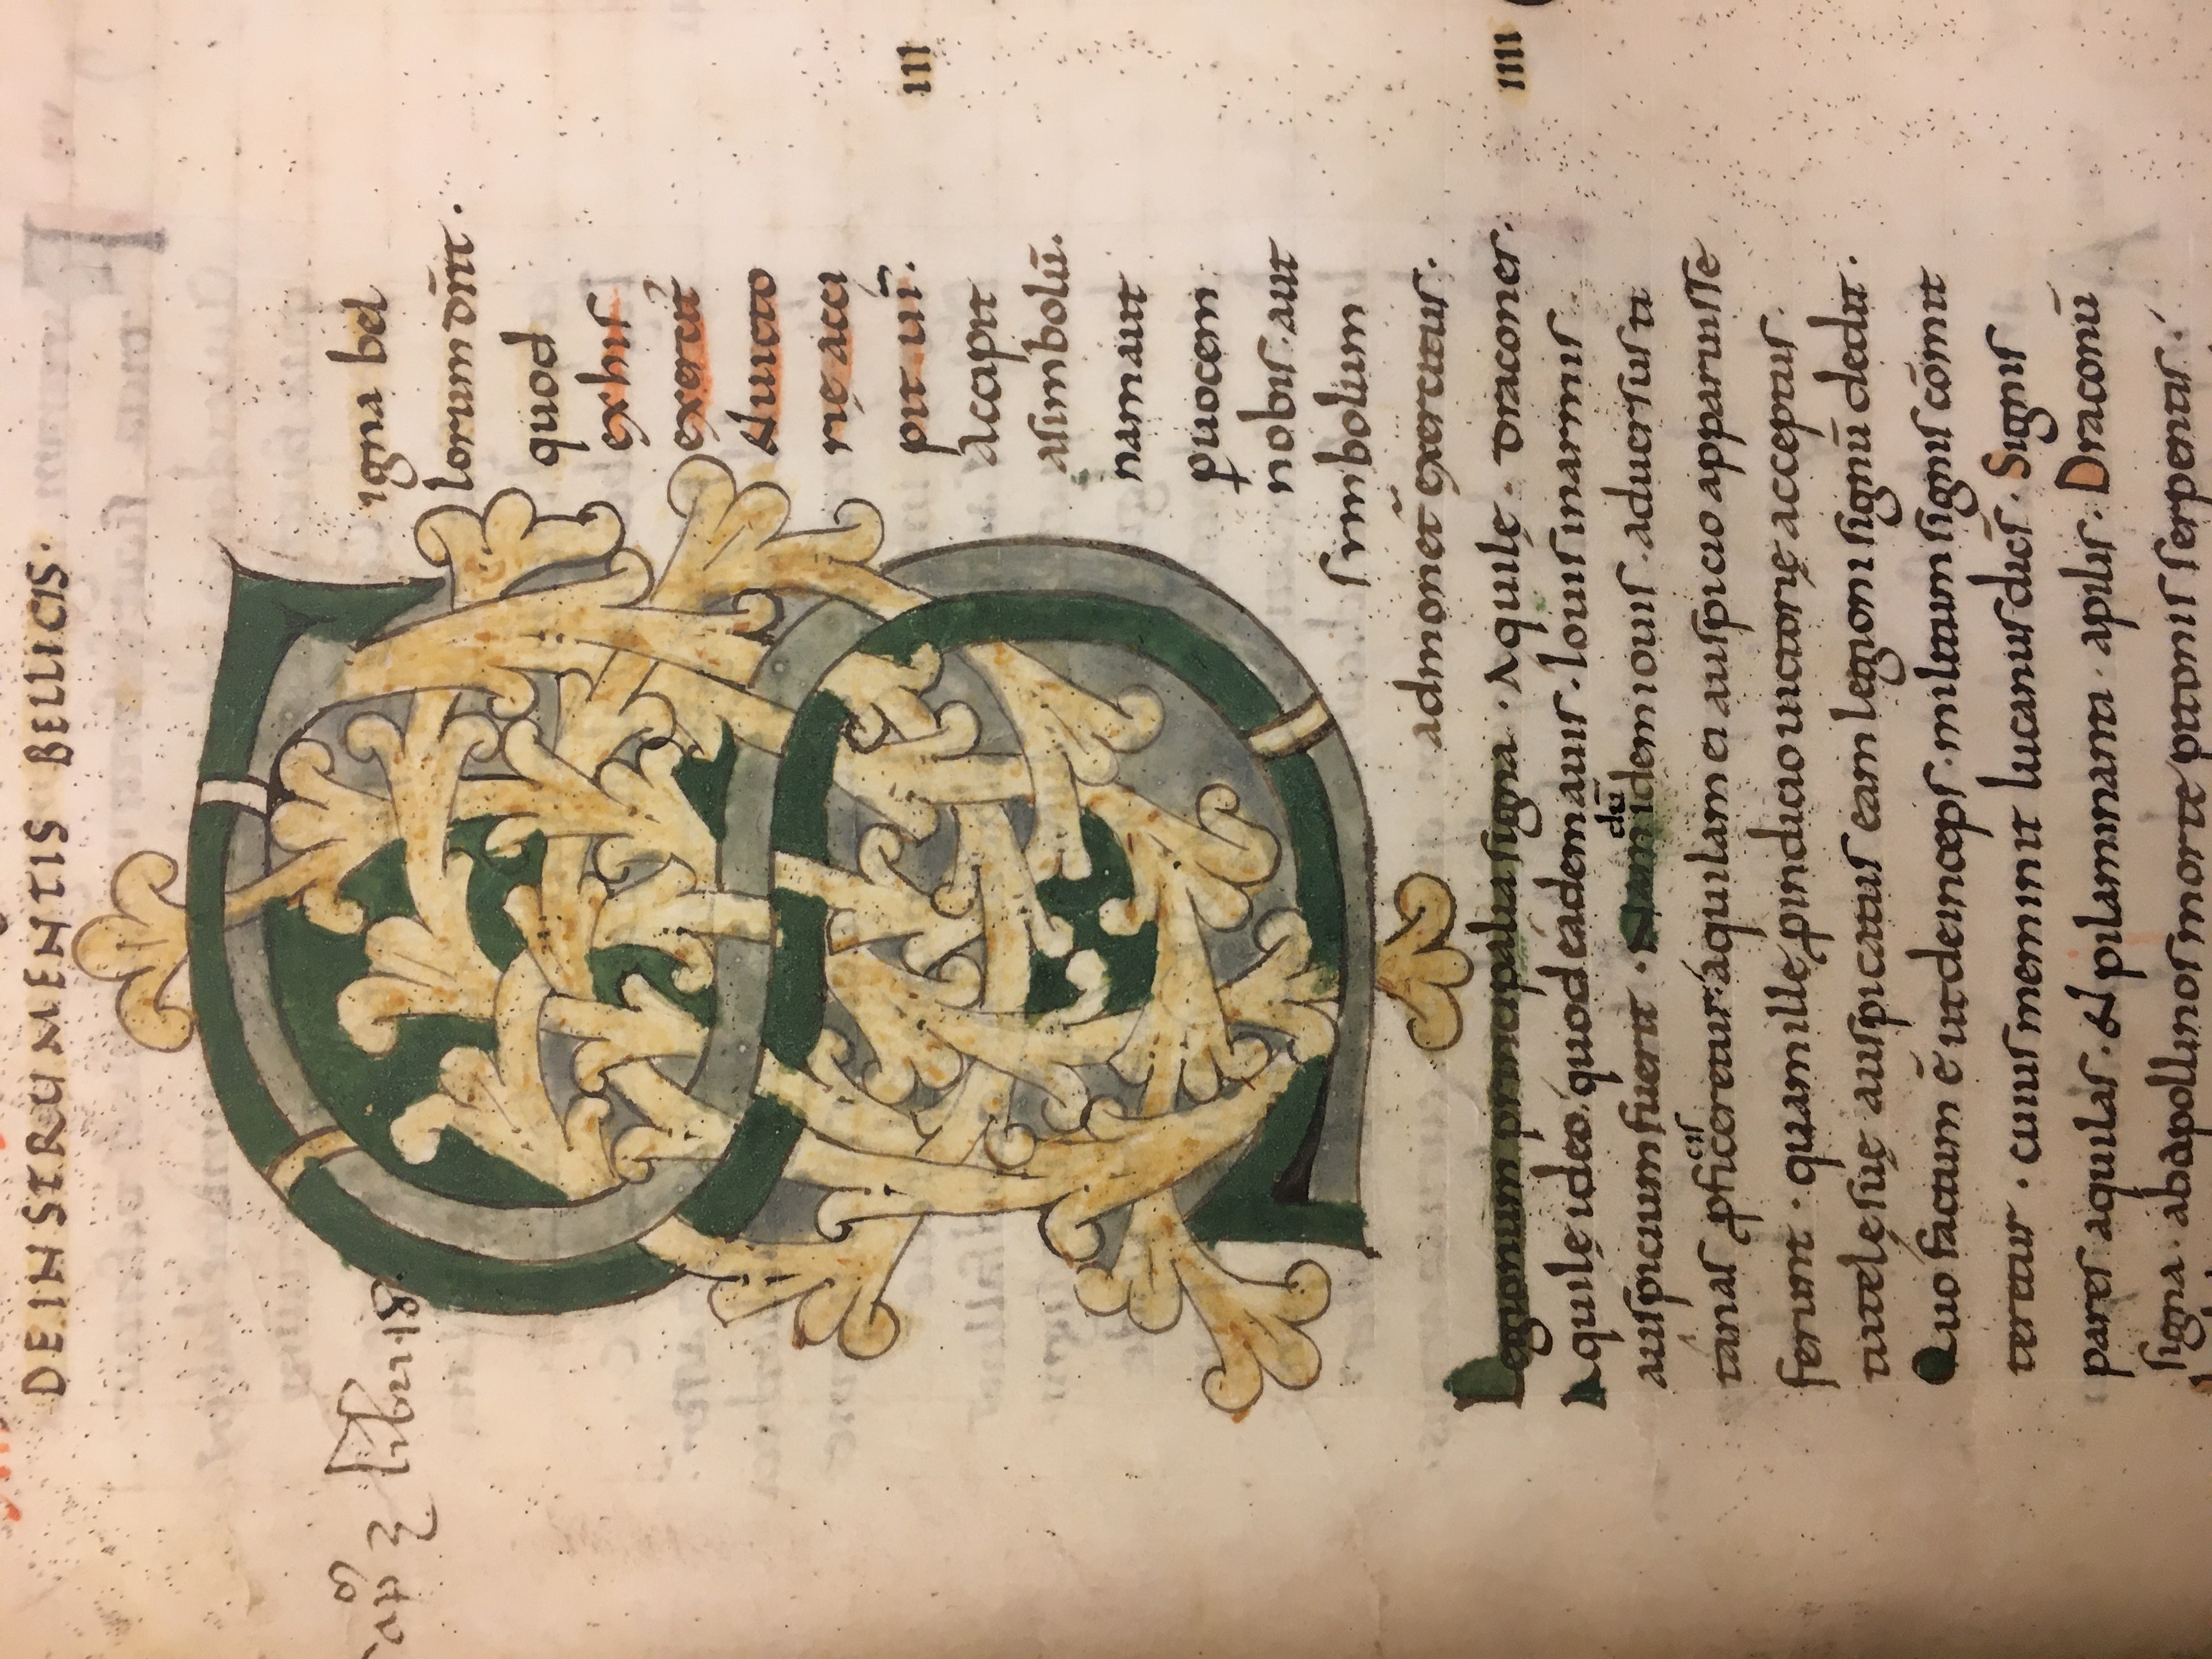 DE INSTRUMENTIS BELLICIS.
Libri 18
III
Signa bel
lorum dn̄r.
quod
ex his
exercit᷒
& uicto
rię acci
pit uī.
acce pit
a simbolū.
nam aut
ꝑ uocem
nobis. aut
symbolum
admonet̄ exercitus.
IIII
Legionum principalia signa. Aquilę. Dracones.
Aquilę ideo. quod eadem auis. Iouis in armis
auspicium fuerit. Nam dū idem iouis. aduersus ti
tanas ꝓficisceretur. aquilam ei auspicio apparuisse
ferunt. quam ille ꝓ indicio uictorię acceptus.
tutelę suę auspicatus eam legioni signū dedit.
Quo factum ē ut deinceps. militum signis comit
teretur. cuius meminit lucanus dicēs. Signis
pares aquilas. & pila minantia. pilis. Draconū
signa. ab apollinis morte pitonis serpentis.